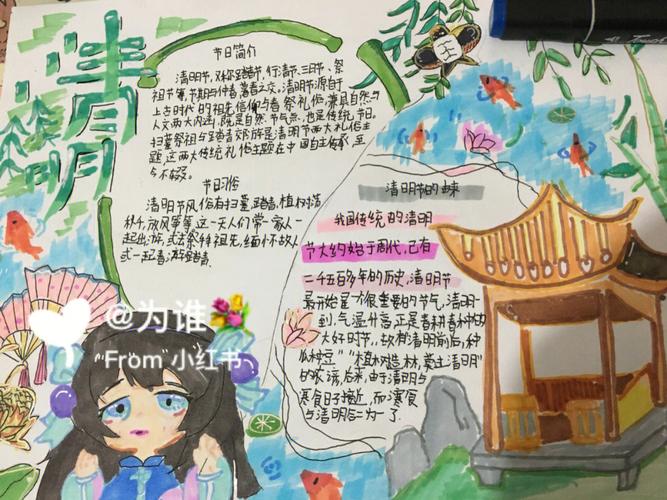 清明
节日简介
清明节,又称踏青节、行清节、三月节、祭
祖节等,节期与仲春暮春之交。清明节源于
上古时代的祖先信仰与春祭礼俗,兼具自然与
人文两大内涵,既是自然节气点,也是传统节日。
扫墓祭祖与踏青郊游是清明节两大礼俗主
题,这两大传统礼俗主题在中国自古传承,至
今不辍。
节日习俗
清明节风俗有扫墓,踏青,植树,荡
秋千,放风筝等,这一天人们常一家人一
起出游,或去祭拜祖先,缅怀故人
或一起春游踏青.
清明节的由来
我国传统的清明
节大约始于周代,已有
二千五百多年的历史,清明节
最开始是一个很重要的节气,清明一
到,气温升高,正是春耕春种的
大好时节,故有"清明前后,种
瓜种豆""植树造林,莫过清明"
的农谚,后来,由于清明与
寒食日子接近,而寒食
与清明合二为一了.
@为谁
From 小红书